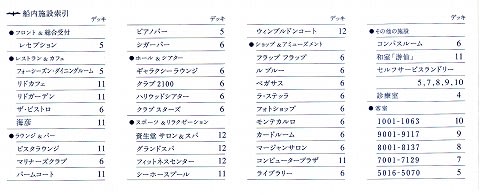 船内施設索引
デッキ
●フロント&総合受付
レセプション 5
●レストラン&カフェ
フォーシーズン・ダイニングルーム 5
リドカフェ 11
リドガーデン 11
ザ・ビストロ 6
海彦 11
●ラウンジ&バー
ビスタラウンジ 11
マリナーズクラブ 6
パームコート 11
デッキ
ピアノバー 5
シガーバー 6
●ホール&シアター
ギャラクシーラウンジ 6
クラブ2100 6
ハリウッドシアター 6
クラブスターズ 6
●スポーツ&リラクゼーション
養生堂 サロン&スパ 12
グランドスパ 12
フィットネスセンター 12
シーホースプール 11
デッキ
ウィンブルドンコート 12
●ショップ&アミューズメント
フラップ フラップ 6
ル ブルー 6
ペガサス 6
ラ・ステッラ 6
フォトショップ 6
モンテカルロ 6
カードルーム 6
マージャンサロン 6
コンピュータープラザ 11
ライブラリー 6
デッキ
●その他の施設
コンパスルーム 6
和室「游仙」 11
セルフサービスランドリー
5,7,8,9,10
診療室 4
●客室
1001-1063 10
9001-9117 9
8001-8137 8
7001-7129 7
5016-5070 5